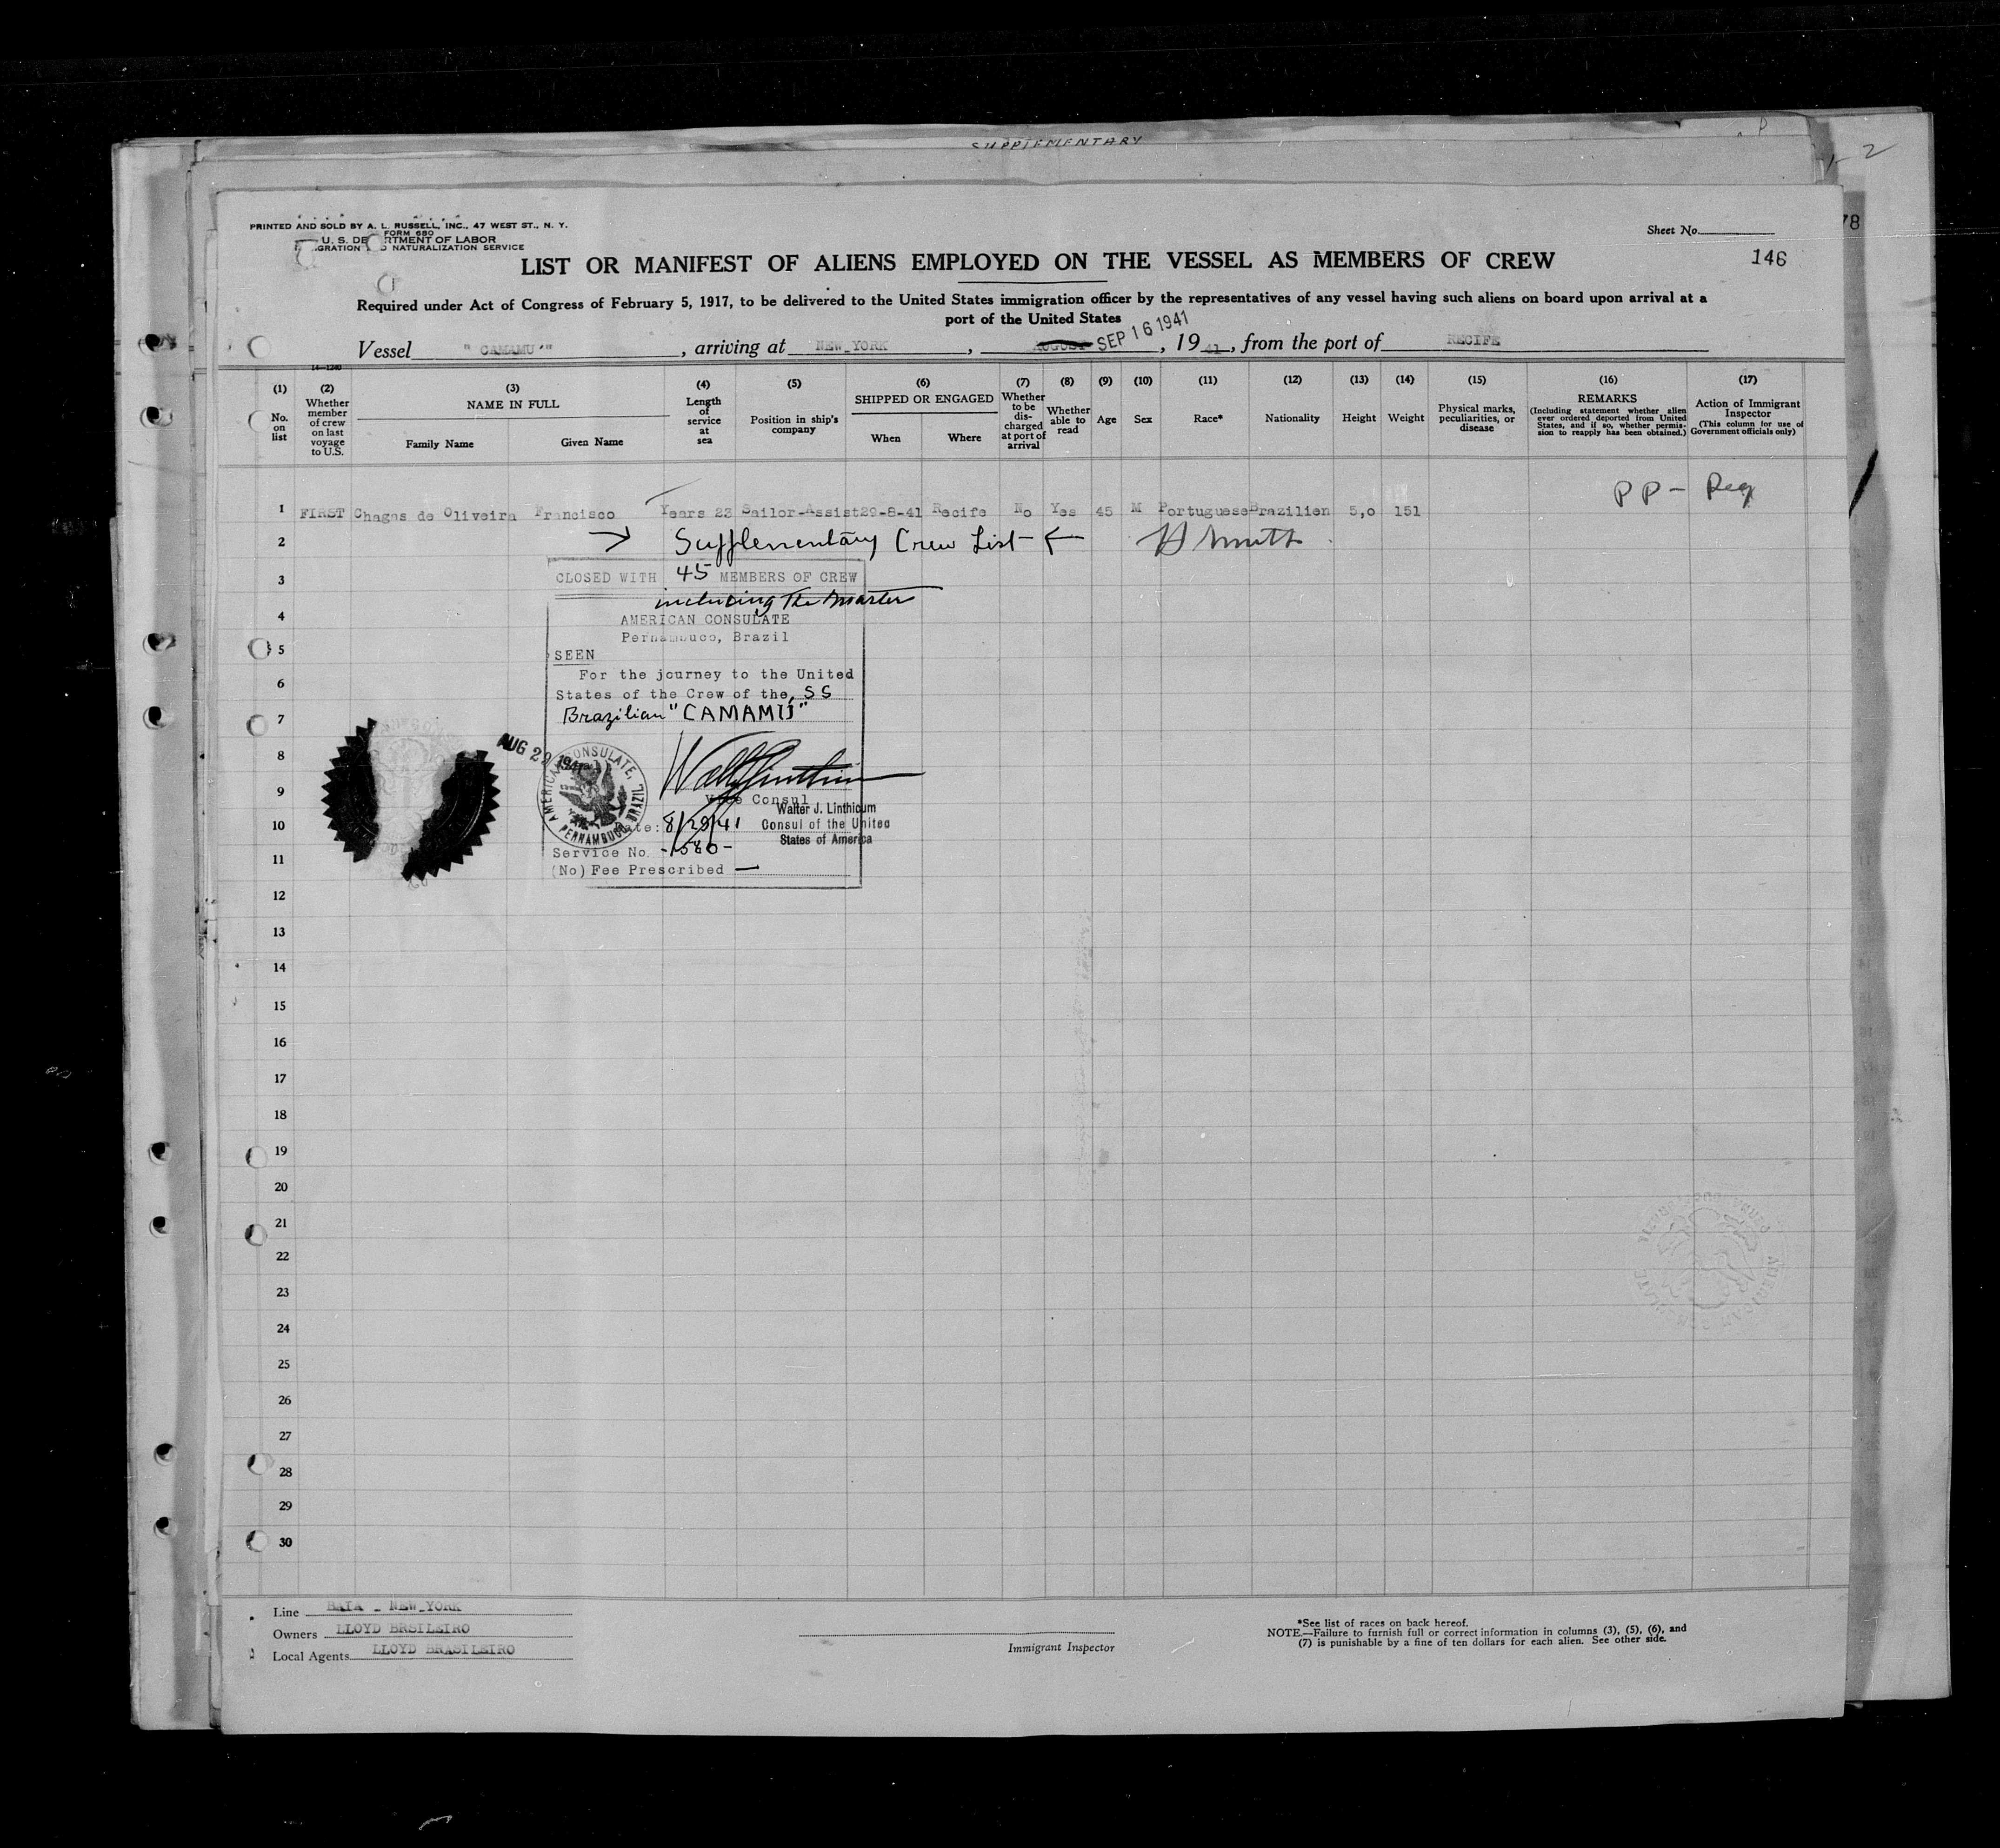 SUPPLEMENTARY
2
PRINTED AND SOLD BY A. L. RUSSELL, INC., 47 WEST ST., N. Y.
FORM 680
U. S. DE RTMENT OF LABOR
GRATION NATURALIZATION SERVICE
Sheet No.
78
146
LIST OR MANIFEST OF ALIENS EMPLOYED ON THE VESSEL AS MEMBERS OF CREW
Required under Act of Congress of February 5, 1917, to be delivered to the United States immigration officer by the representatives of any vessel having such aliens on board upon arrival at a
port of the United States
Vessel " CAMAMU'" , arriving at NEW YORK , AUGUST SEP 16 1941 , 19 41 , from the port of RECIFE
14—1240
(1) (2) (3) (4) (5) (6) (7) (8) (9) (10) (11) (12) (13) (14) (15) (16) (17)
No. on list
Whether member of crew on last voyage to U.S.
NAME IN FULL
Family Name Given Name
Length of service at sea
Position in ship's company
SHIPPED OR ENGAGED
When Where
Whether to be discharged at port of arrival
Whether able to read
Age
Sex
Race*
Nationality
Height
Weight
Physical marks, peculiarities, or disease
REMARKS
(Including statement whether alien ever ordered deported from United States, and if so, whether permission to reapply has been obtained.)
Action of Immigrant Inspector
(This column for use of Government officials only)
PP- Reg
1 FIRST Chagas de Oliveira Francisco Years 23 Sailor-Assist 29-8-41 Recife No Yes 45 M Portuguese Brazilien 5,0 151
2 Supplementary Crew List
3 CLOSED WITH 45 MEMBERS OF CREW
including the Master
4 AMERICAN CONSULATE
Pernambuco, Brazil
5 SEEN
6 For the journey to the United
States of the Crew of the, SS
7 Brazilian "CAMAMÚ"
8
AUG 29 1941
AMERICAN CONSULATE, PERNAMBUCO, BRAZIL
9 Vice Consul
Walter J. Linthicum
10 Date: 8/29/41 Consul of the United
States of America
11 Service No. -1580-
(No) Fee Prescribed —
12
13
14
15
16
17
18
19
20
21
22
23
24
25
26
27
28
29
30
AMERICAN CONSULATE
Line BAIA - NEW YORK
Owners LLOYD BRSILEIRO
Local Agents LLOYD BRASILEIRO
Immigrant Inspector
*See list of races on back hereof.
NOTE.—Failure to furnish full or correct information in columns (3), (5), (6), and
(7) is punishable by a fine of ten dollars for each alien. See other side.